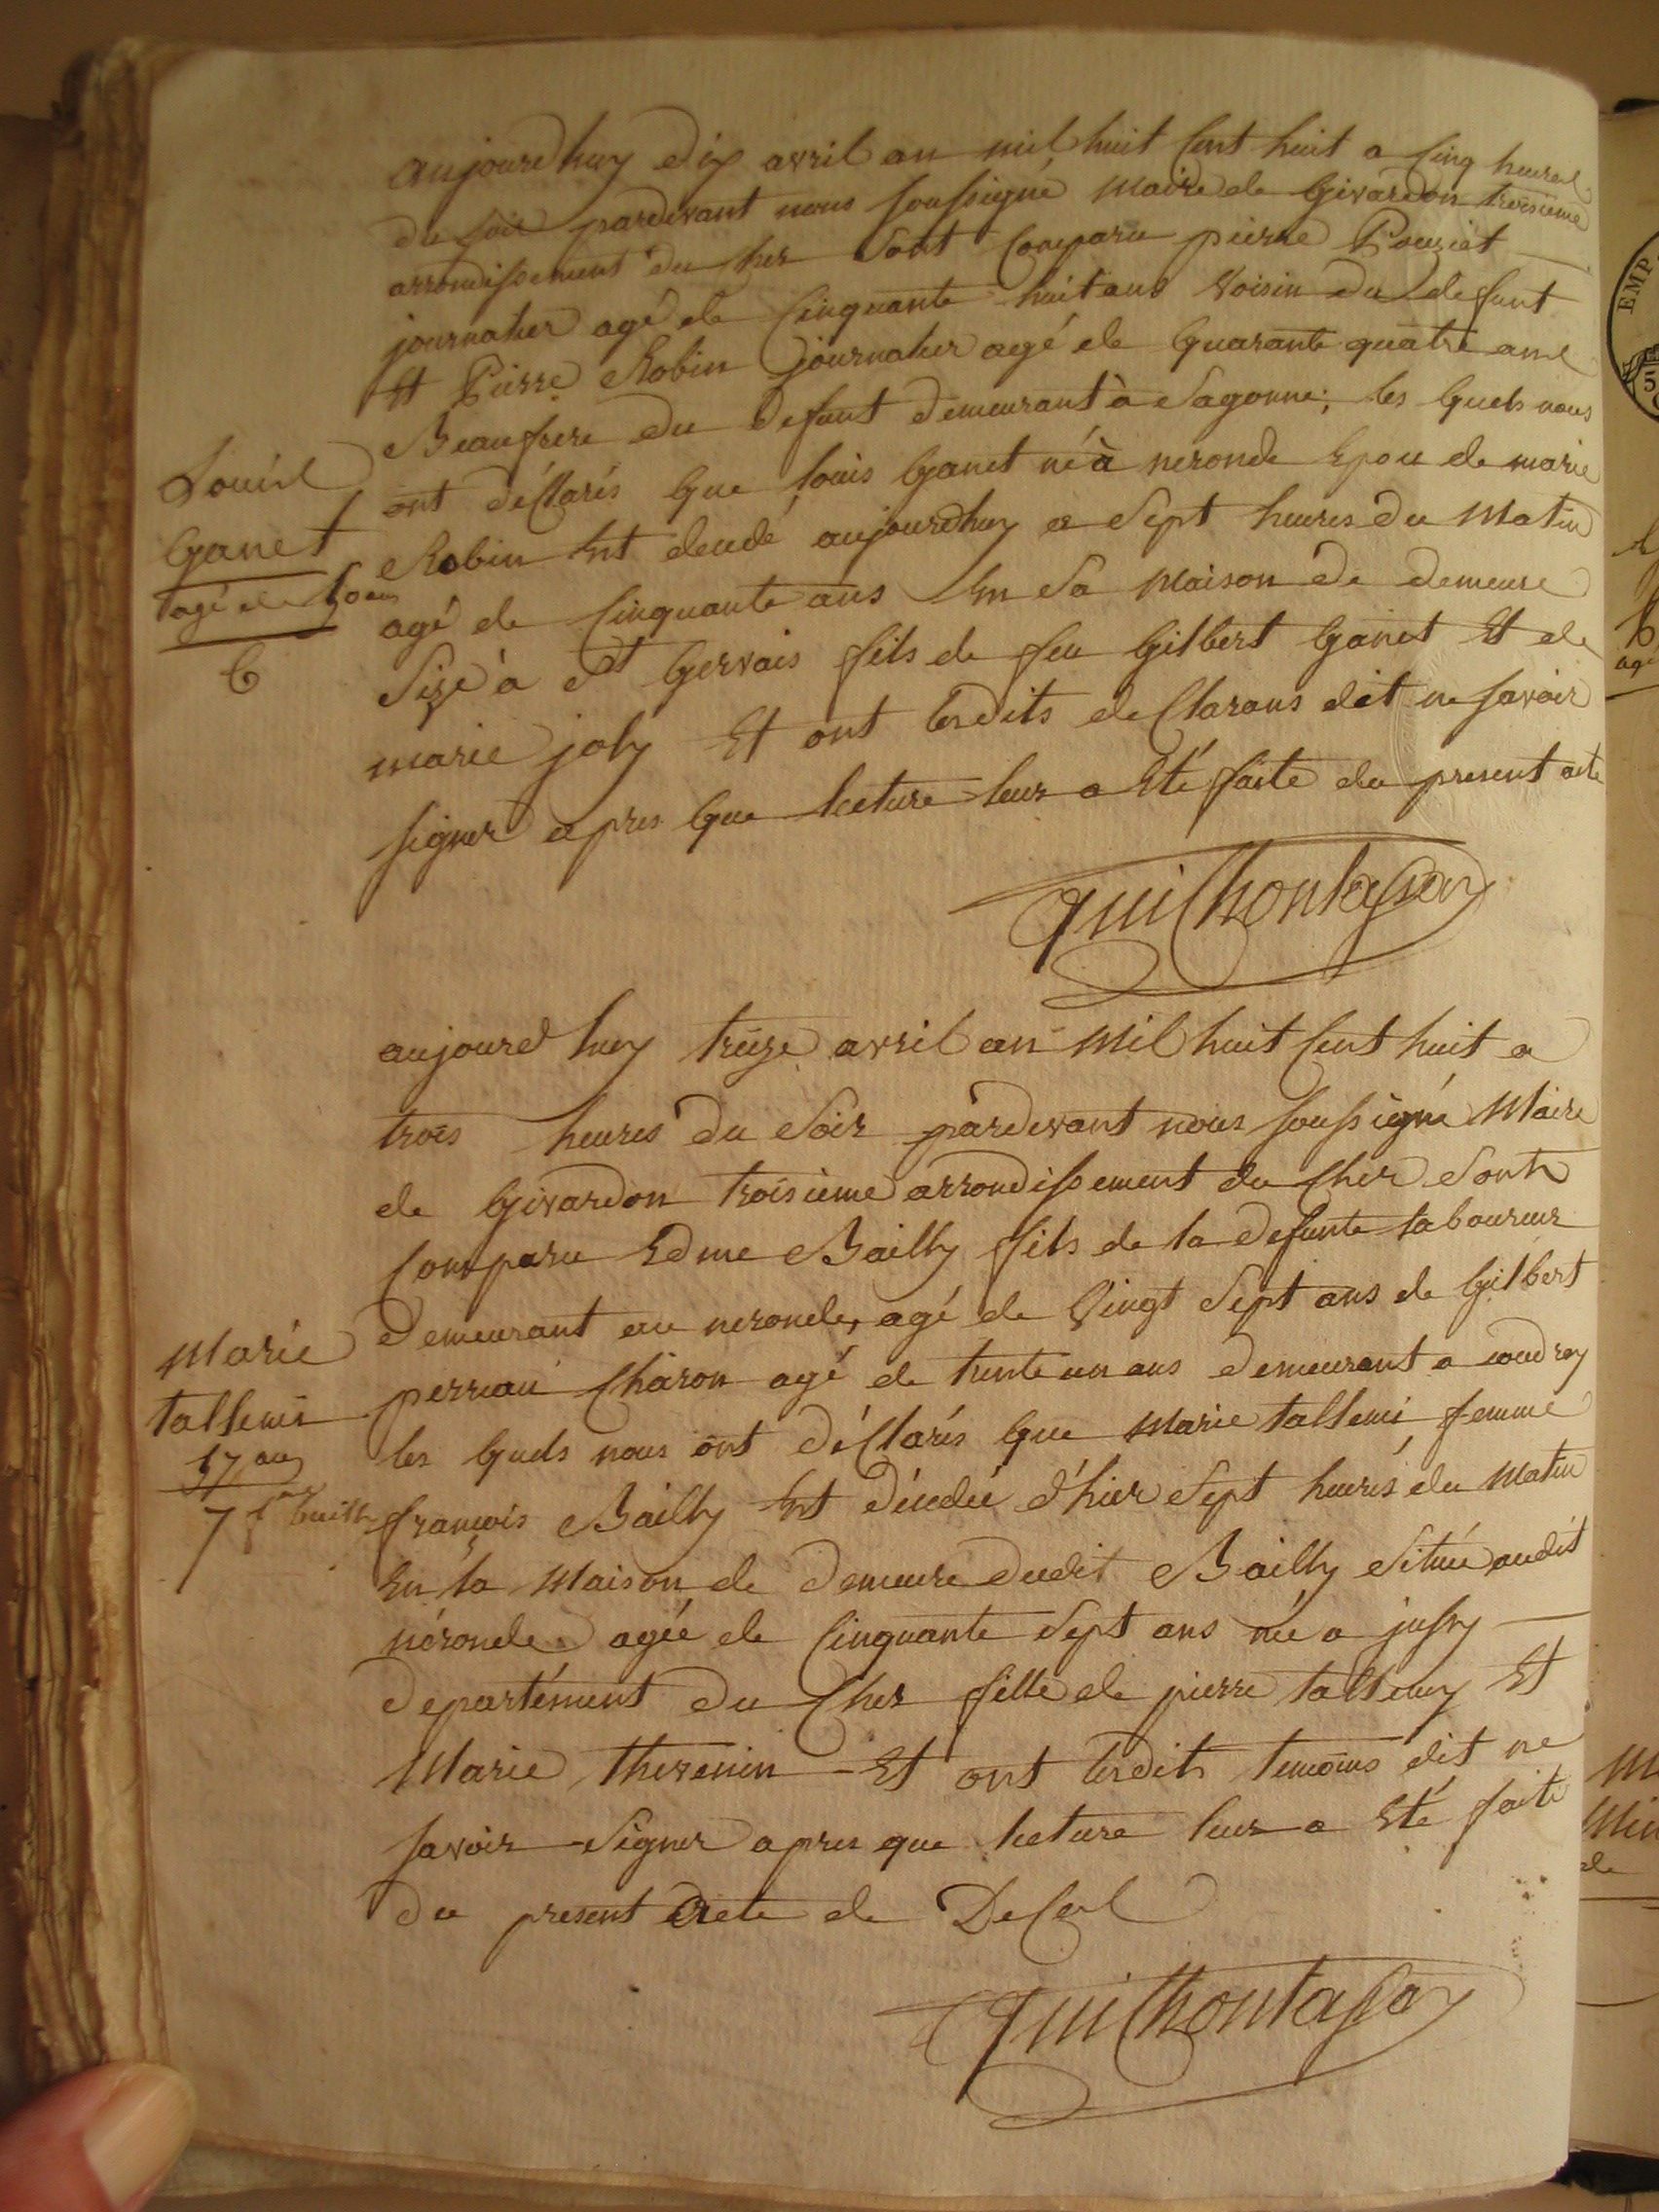 aujourdhuy dix avril an mil huit Cent huit a Cinq heures
du soir pardevant nous soussigné Maire de Givardon troisieme
arrondissement du Cher Sont Comparu pierre Pouziet
journalier agé de Cinquante huit ans Voisin du defunt
Et Pierre Robin journalier agé de quarante quatre ans
Beaufrere du defunt demeurant à Sagonne; les quels nous
ont déClarés que louis Ganet né à neronde Epou de marie
Robin Est decedé aujourdhuy a Sept heures du Matin
agé de Cinquante ans En Sa Maison de demeure
Size à St Gervais fils de feu Gilbert Ganet Et de
marie joly Et ont lesdits deClarans dit ne savoir
signer apres que lecture leur a Eté faite du present acte
Louis
Ganet
agé de 50 ans
6
quiChontassay
aujourdhuy treize avril an Mil huit Cent huit a
trois heures du Soir pardevant nous soussigné Maire
de Givardon troisieme arrondissement du Cher Sont
Comparu Edme Bailly fils de la defunte laboureur
demeurant au neronde, agé de Vingt Sept ans de Gilbert
perreau Charon agé de trente un ans demeurant a coudray
les quels nous ont déClarés que Marie tallemi femme
françois Bailly Est décédée d'hier Sept heures du Matin
En la Maison de demeure dudit Bailly Située audit
néronde agée de Cinquante Sept ans née a jussy
departément du Cher fille de pierre tallemy Et
Marie thevenin Et ont lesdits temoins dit ne
savoir Signer apres que lecture leur a Eté faite
du present acte de Deces
Marie
tallemi
57 ans
7 f Bailly
quiChontassay